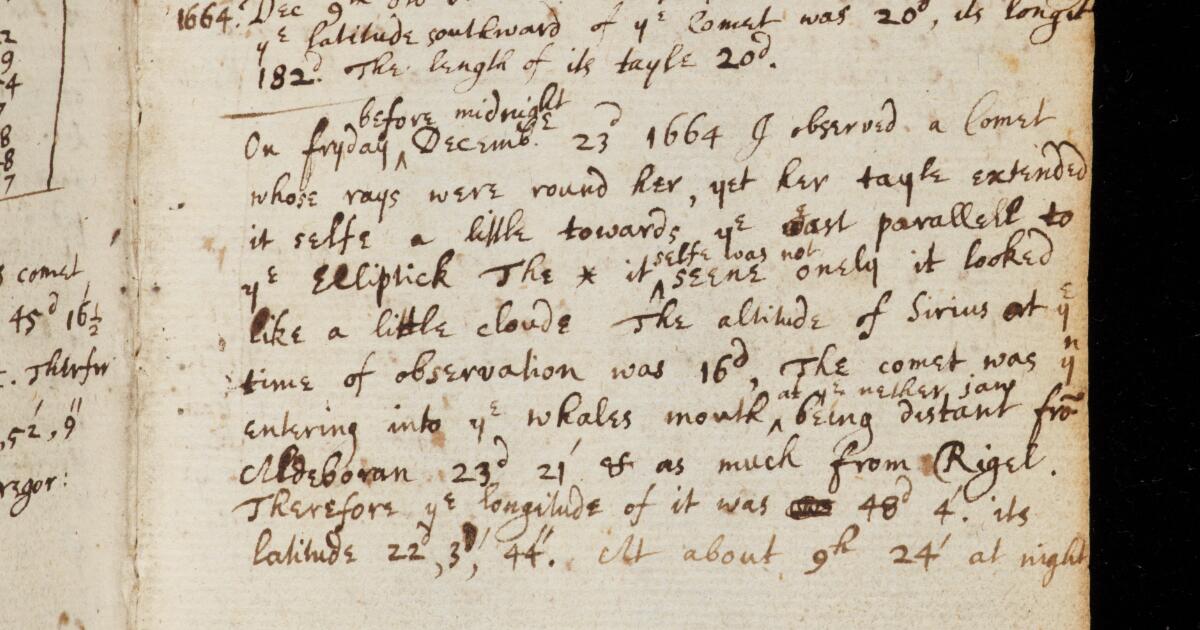 2
9
4
7
8
8
7
comet
45ᵈ 16½
. Therfor
,52′,9″
regor:
1664. Dec 9ᵗʰ
yᵉ latitude southward of yᵉ Comet was 20ᵈ, its longit
182ᵈ. The length of its tayle 20ᵈ.
before midnight
On fryday ‸ Decembᵉ 23ᵈ 1664 I observed a Comet
whose rays were round her, yet her tayle extended
it selfe a little towards yᵉ east parallell to
yᵉ Elliptick The * it ‸ selfe was not seene onely it looked
like a little cloude The altitude of Sirius at yᵉ
time of observation was 16ᵈ, The comet was yⁿ
entering into yᵉ whales mouth ‸ at yᵉ nether jaw being distant frō
Aldeboran 23ᵈ 21′ & as much from Rigel.
Therefore yᵉ longitude of it was 48ᵈ 4′. its
latitude 22ᵈ, 3′, 44″. At about 9ʰ 24′ at night